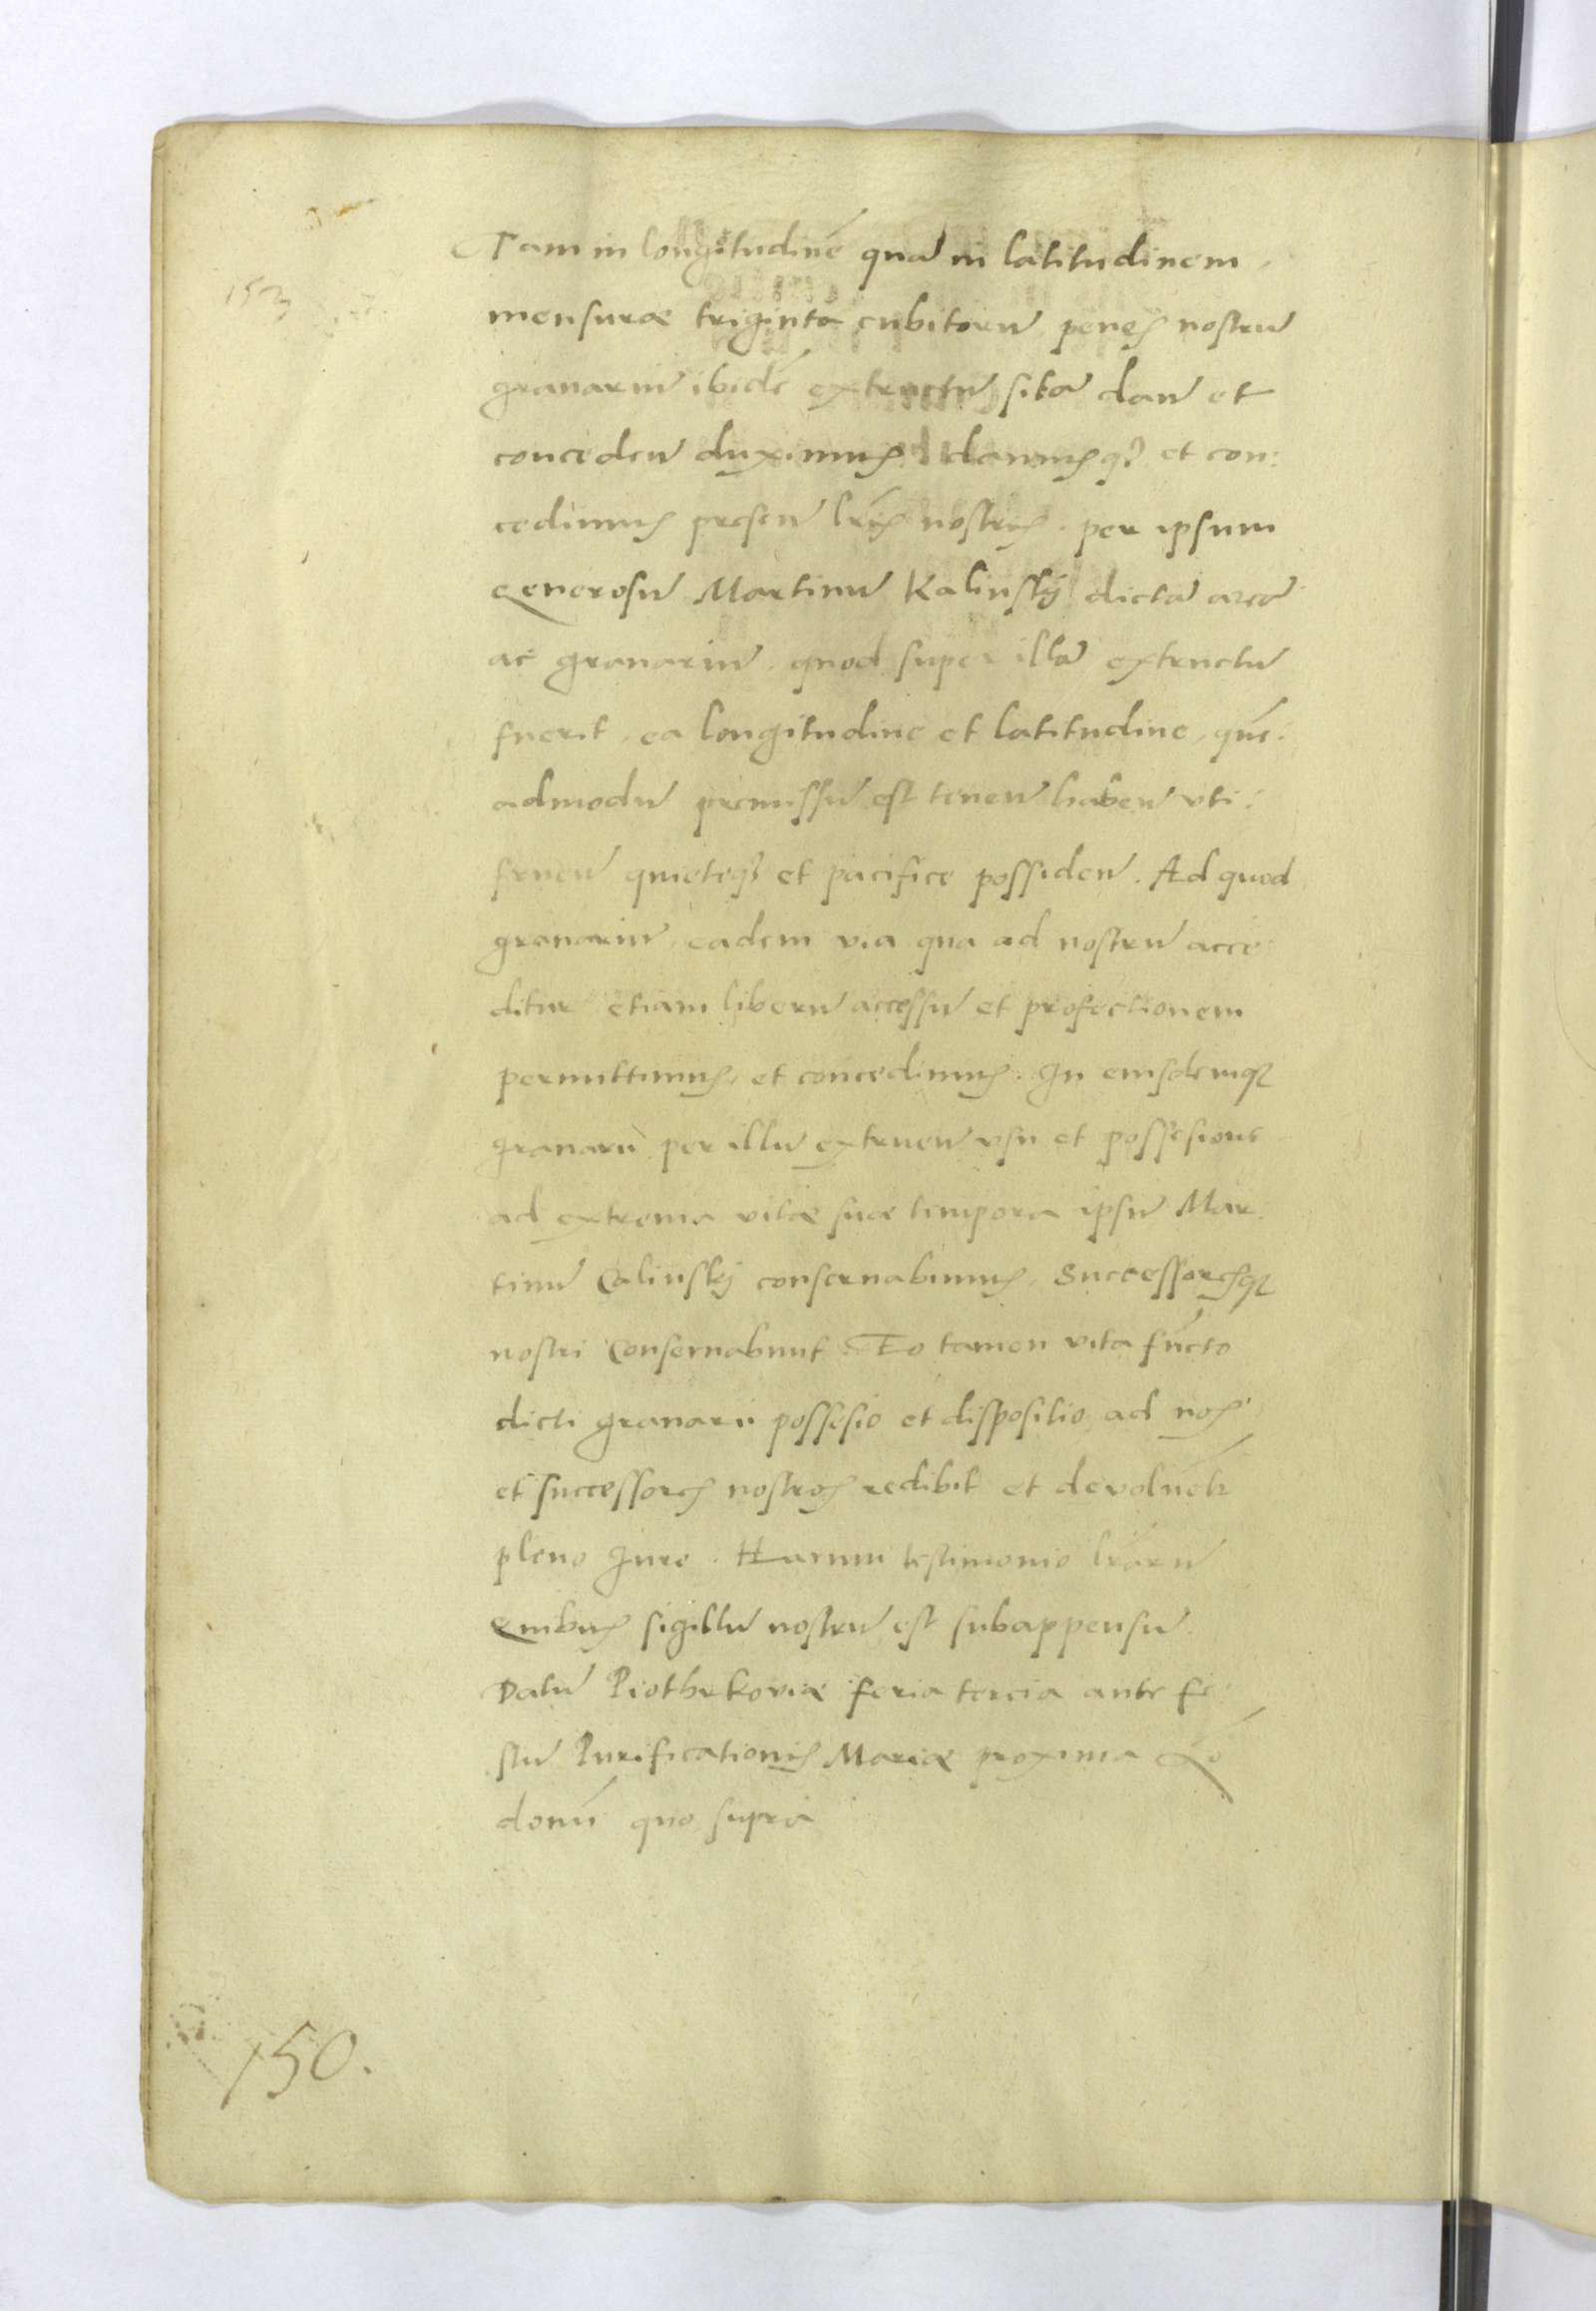 Tam in longitudinē quā in latitudinem,
mensuræ triginta cubitorū penes nostrū
granariū ibidē extructū sitā dan̄ et
conceden̄ duximus damusq₃ et con:
cedimus presen̄ lr̄is nostris. per ipsum
Generosū Martinū Kalinsky dictā areā
ac granariū quod super illā extructū
fuerit, ea longitudine et latitudine, quē:
admodū premissū est tenen̄ haben̄ vti:
fruen̄ quieteq₃ et pacifice possiden̄. Ad quod
granariū eadem via qua ad nostrū acce
ditur etiam liberū accessū et profectionem
permittimus, et concedimus. In eiusdemq₃
granarii per illū extruen̄ vsu et possesione
ad extrema vitæ suæ tempora ipsū Mar
tinū Calinsky conseruabimus, Successoresq₃
nostri Conseruabunt. Eo tamen vita fūcto
dicti granarii possesio et dispositio ad nos
et successores nostros redibit et devoluet̄r
pleno Jure. Harum testimonio lr̄arū
Quibus sigillū nostrū est subappensū.
Datū Piothrkoviæ feria tercia ante fe
stū Purificationis Mariæ proxima Ao
domī quo supra
153
150.